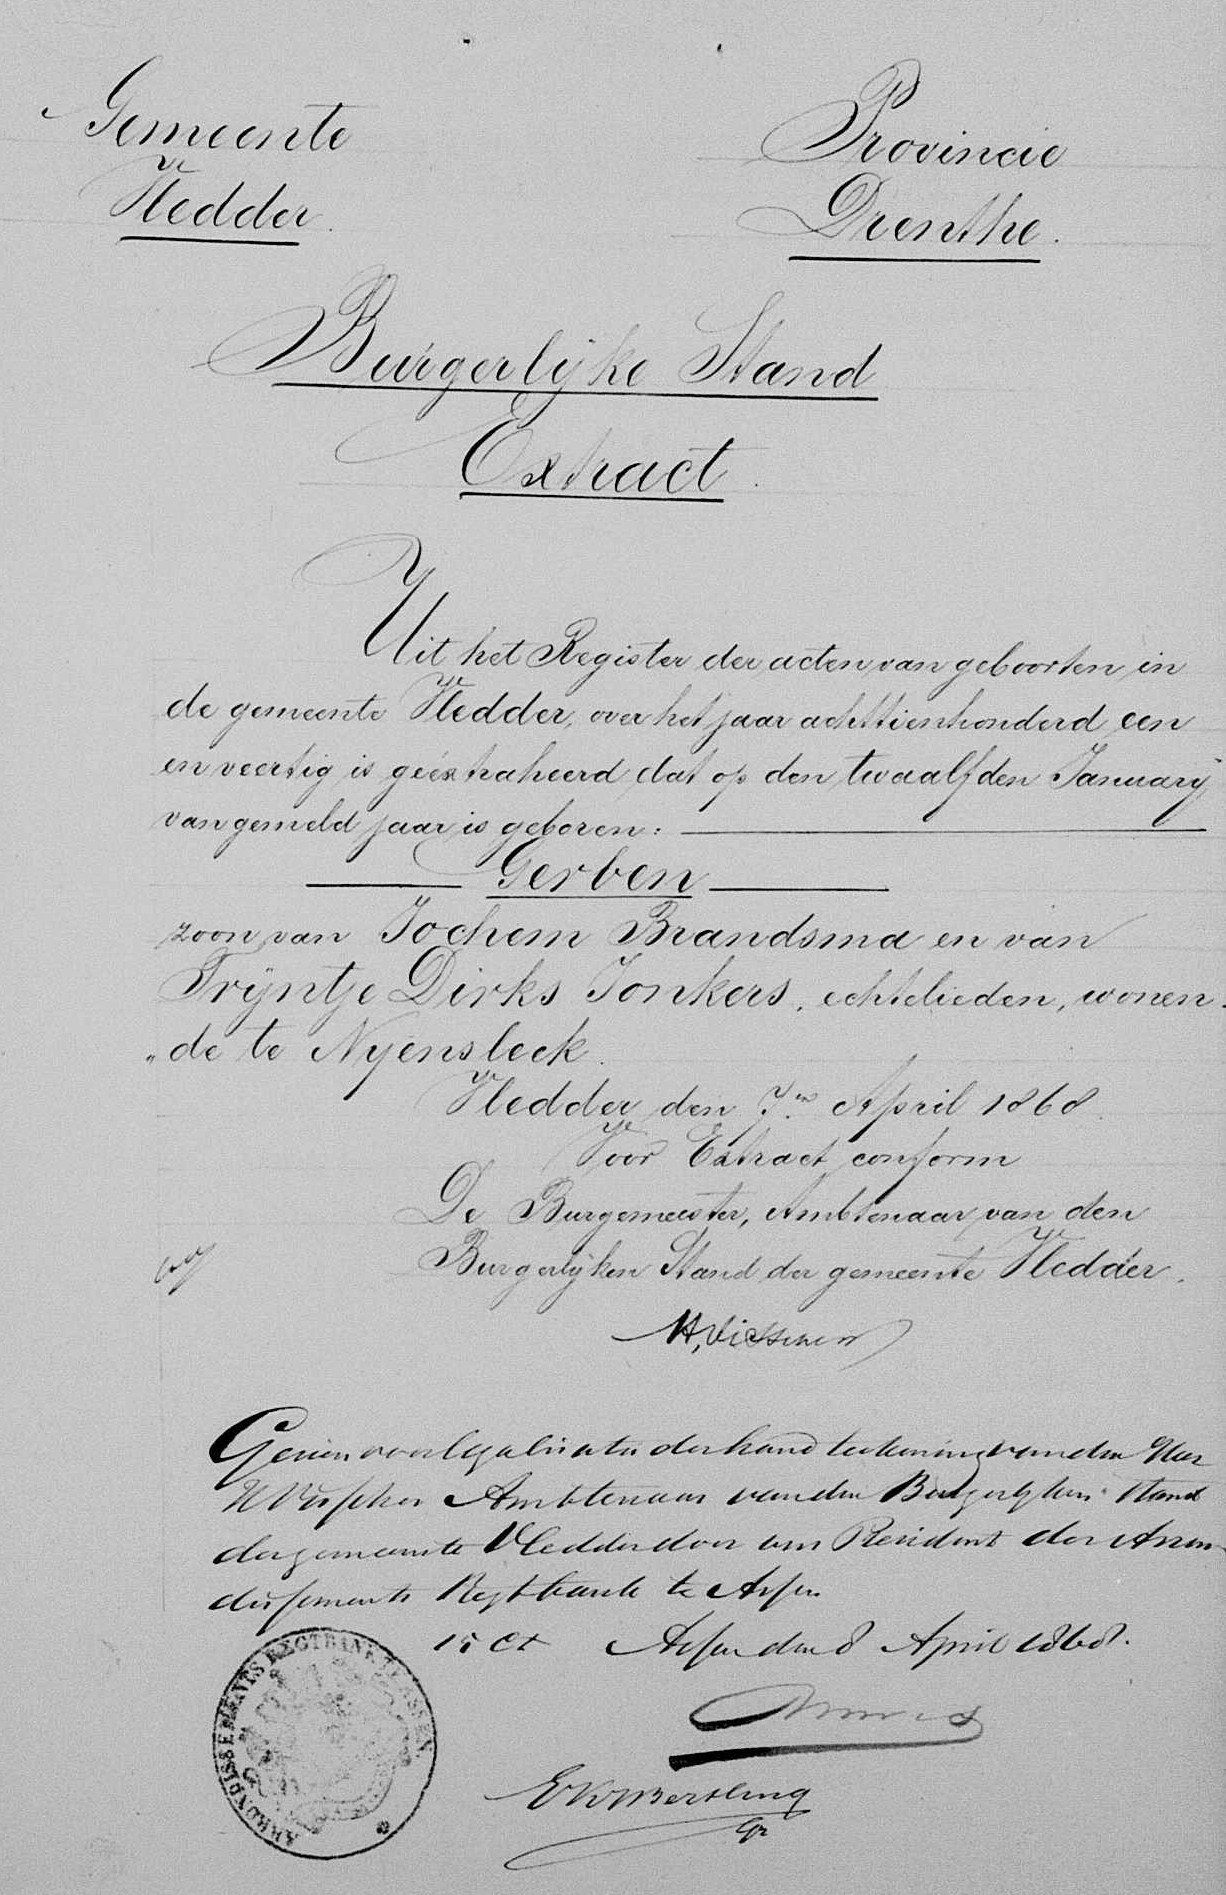 Gemeente
Vledder.
Provincie
Drenthe.
Burgerlijke Stand
Extract.
Uit het Register der acten van geboorten in
de gemeente Vledder, over het jaar achttienhonderd een
en veertig is geëxtraheerd dat op den twaalfden Januarij
van gemeld jaar is geboren:
Gerben
zoon van Jochem Brandsma en van
Trijntje Dirks Jonkers, echtelieden, wonen-
„de te Nijensleek.
Vledder den 7.en April 1868.
Voor Extract conform
De Burgemeester, Ambtenaar van den
Burgerlijken Stand der gemeente Vledder.
Gezien voor legalisatie der handteekening van den Heer
Ambtenaar van den Burgerlijken Stand
der gemeente Vledder door ons President der Arron-
dissements Regtbank te Assen
15 Ct Assen den 8 April 1868.
EKWBertling
Gr
ARRONDISSEMENTS REGTBANK TE ASSEN